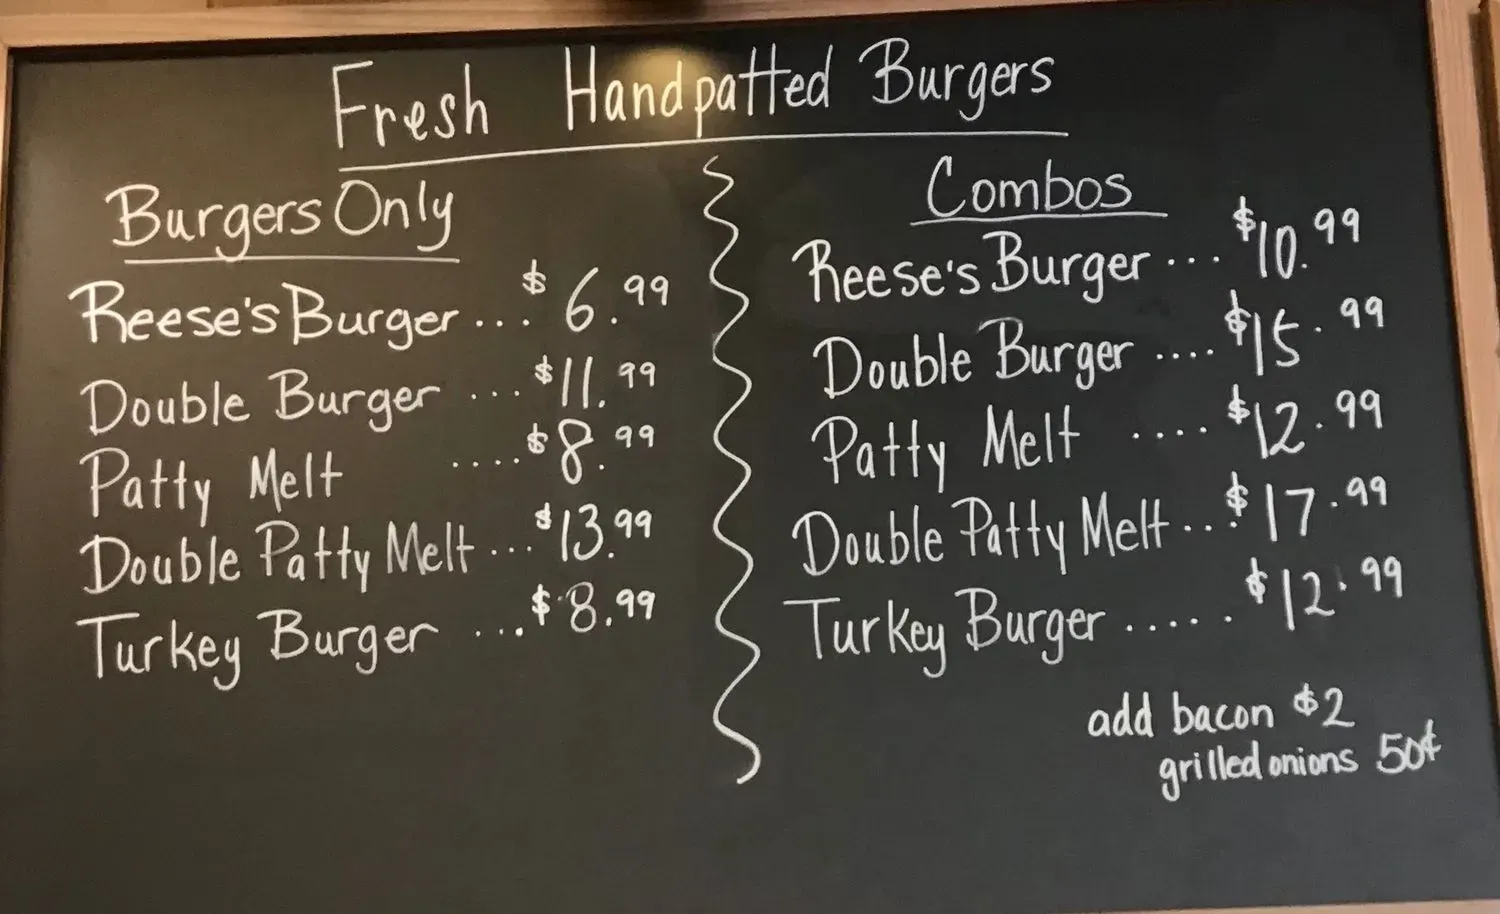 Fresh Handpatted Burgers
Burgers Only
Reese's Burger ... $6.99
Double Burger ... $11.99
Patty Melt .... $8.99
Double Patty Melt ... $13.99
Turkey Burger ... $8.99
Combos
Reese's Burger ... $10.99
Double Burger .... $15.99
Patty Melt .... $12.99
Double Patty Melt ... $17.99
Turkey Burger ..... $12.99
add bacon $2
grilled onions 50¢